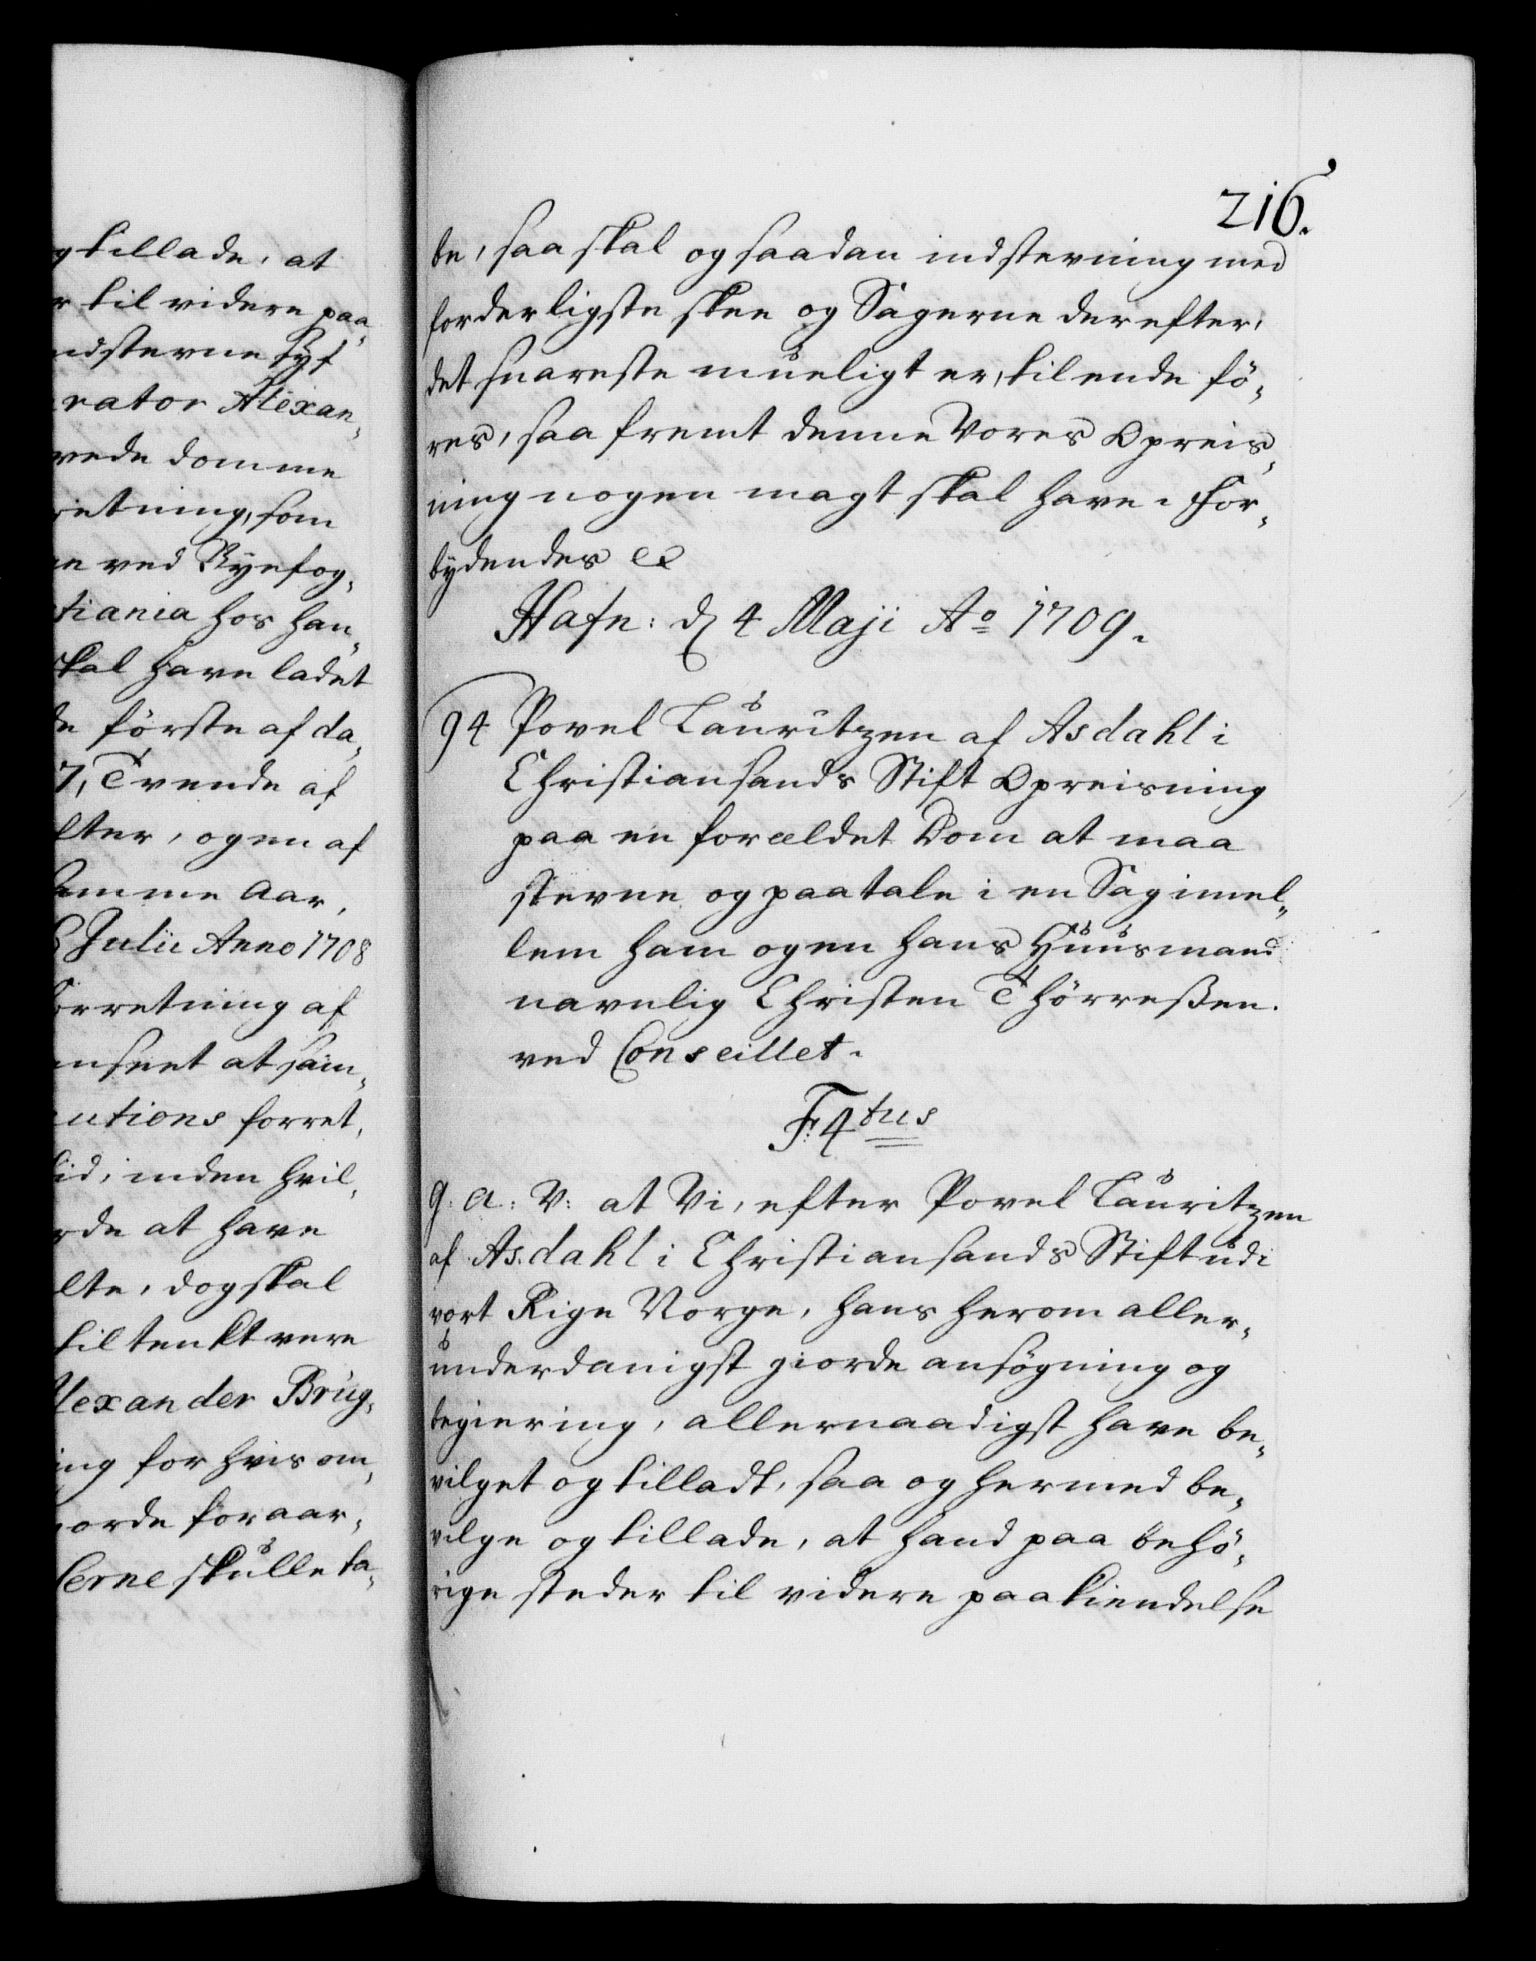 g tillade, at
r til videre paa„
ndstevne Hyf
rator Alexan„
vede domme
retning, som
ne ved Byefog„
tiania hos han„
skal have ladet
de förste af da„
7, Tvende af
lter, og en af
samme Aar,
Julii Anno 1708
orretning af
anseet at saa„
utions forret„
tid, inden hvil„
rde at have
lte, dog skal
tiltenkt vere
lexander Brüg„
ing for hvis om„
orde for aar„
lerne skulle ta„
216.
te, saa skal og saadan indstevning med
forderligste skee og Sagerne derefter,
det snareste mueligt er, til ende fö„
res, saa fremt denne Vores Opreis„
ning nogen magt skal have. For„
bydendes &
Hafn: d 4 Maji Ao 1709.
94 Povel Lauritzen af Asdahl i
Christiansands Stift Opreisning
paa en forældet Dom at maa
stevne og paatale i en Sag imel„
lem ham og en hans Huusmand
navnlig Christen Thörreßen.
ved Conseillet.
F: 4tus
G: A: V: at Vi, efter Povel Lauritzen
af As.dahl i Christiansands Stift udi
vort Rige Norge, hans herom aller„
underdanigst giorde ansögning og
begiering, allernaadigst have be„
vilget og tilladt, saa og hermed be„
vilge og tillade, at hand paa behö„
rige steder til videre paakiendelse